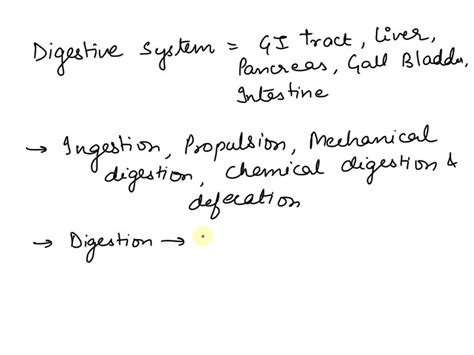 Digestive System = GI Tract, Liver,
Pancreas, Gall Bladder,
Intestine
→ Ingestion, Propulsion, Mechanical
digestion, Chemical digestion &
defecation
→ Digestion →